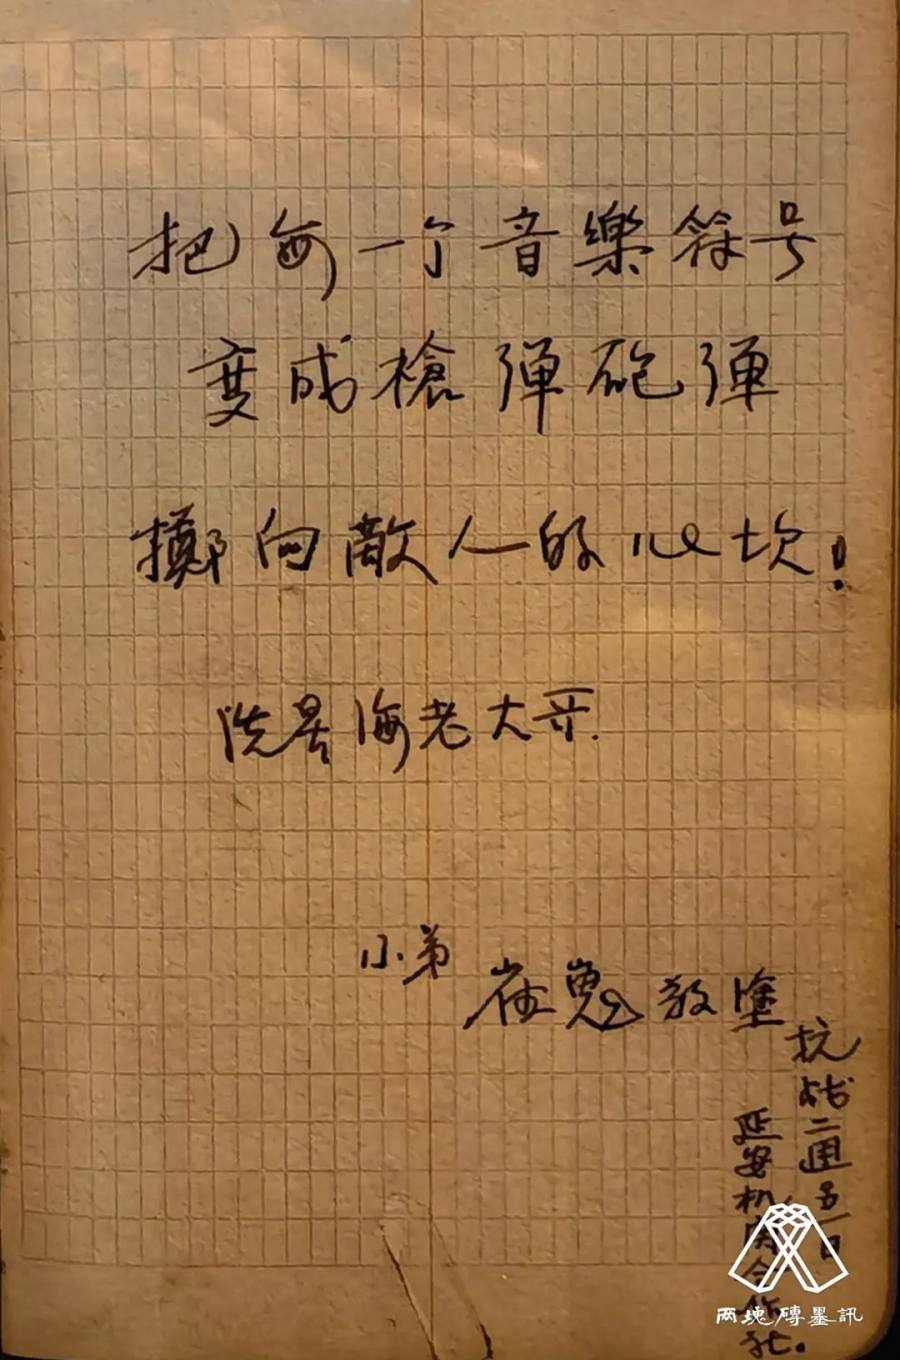 把每一个音樂符号
变成槍弹砲弹
擲向敵人的心坎！
洗星海老大哥.
小弟 崔嵬 敬塗
抗战二週年一日
延安机関合作社.
两塊磚墨訊